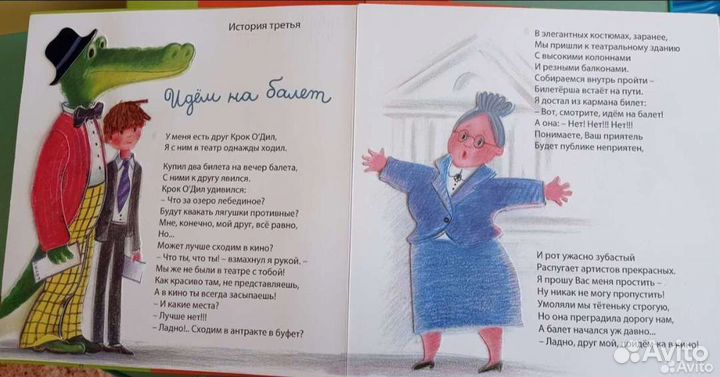 История третья
Идём на балет
У меня есть друг Крок О'Дил,
Я с ним в театр однажды ходил.
Купил два билета на вечер балета,
С ними к другу явился.
Крок О'Дил удивился:
– Что за озеро лебединое?
Будут квакать лягушки противные?
Мне, конечно, мой друг, всё равно,
Но...
Может лучше сходим в кино?
– Что ты, что ты! – взмахнул я рукой. –
Мы же не были в театре с тобой!
Как красиво там, не представляешь,
А в кино ты всегда засыпаешь!
– И какие места?
– Лучше нет!!!
– Ладно!.. Сходим в антракте в буфет?
В элегантных костюмах, заранее,
Мы пришли к театральному зданию
С высокими колоннами
И резными балконами.
Собираемся внутрь пройти –
Билетёрша встаёт на пути.
Я достал из кармана билет:
– Вот, смотрите, идём на балет!
А она: – Нет! Нет!!! Нет!!!
Понимаете, Ваш приятель
Будет публике неприятен,
И рот ужасно зубастый
Распугает артистов прекрасных.
Я прошу Вас меня простить –
Ну никак не могу пропустить!
Умоляли мы тётеньку строгую,
Но она преградила дорогу нам,
А балет начался уж давно...
– Ладно, друг мой, пойдём-ка в кино!
Avito
Avito